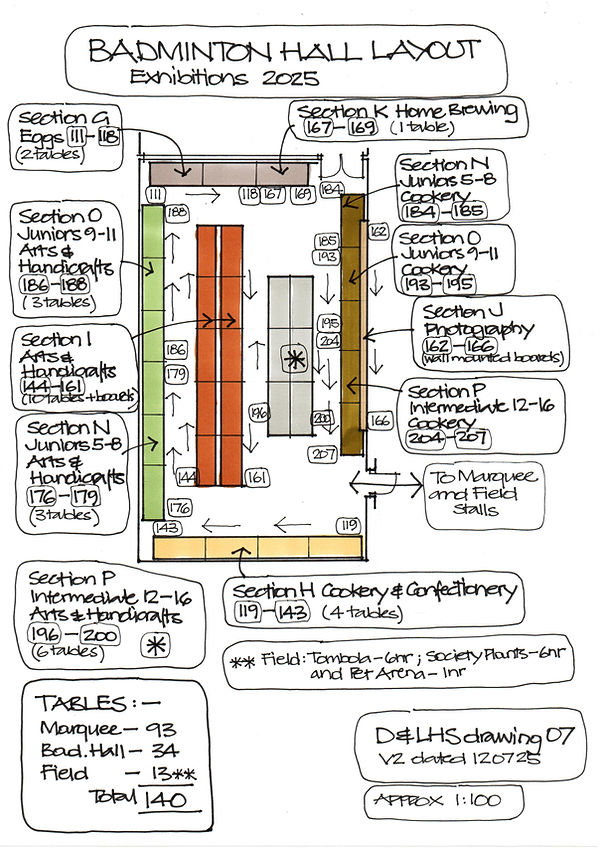 BADMINTON HALL LAYOUT
Exhibitions 2025
Section G
Eggs 111-118
(2 tables)
Section K Home Brewing
167-169 (1 table)
Section N
Juniors 5-8
Cookery
184-185
Section O
Juniors 9-11
Arts &
Handicrafts
186-188
(3 tables)
Section O
Juniors 9-11
Cookery
193-195
Section J
Photography
162-166
(wall mounted boards)
Section I
Arts &
Handicrafts
144-161
(10 tables + boards)
Section P
Intermediate 12-16
Cookery
204-207
Section N
Juniors 5-8
Arts &
Handicrafts
176-179
(3 tables)
To Marquee
and Field
Stalls
111
118
167
169
184
188
162
185
193
195
204
186
179
*
196
200
166
207
144
161
176
143
119
Section P
Intermediate 12-16
Arts & Handicrafts
196-200
(6 tables) *
Section H Cookery & Confectionery
119-143 (4 tables)
** Field: Tombola-6nr; Society Plants-6nr
and Pet Arena-1nr
TABLES:-
Marquee- 93
Bad. Hall- 34
Field - 13**
Total 140
D&LHS drawing 07
V2 dated 120725
APPROX 1:100